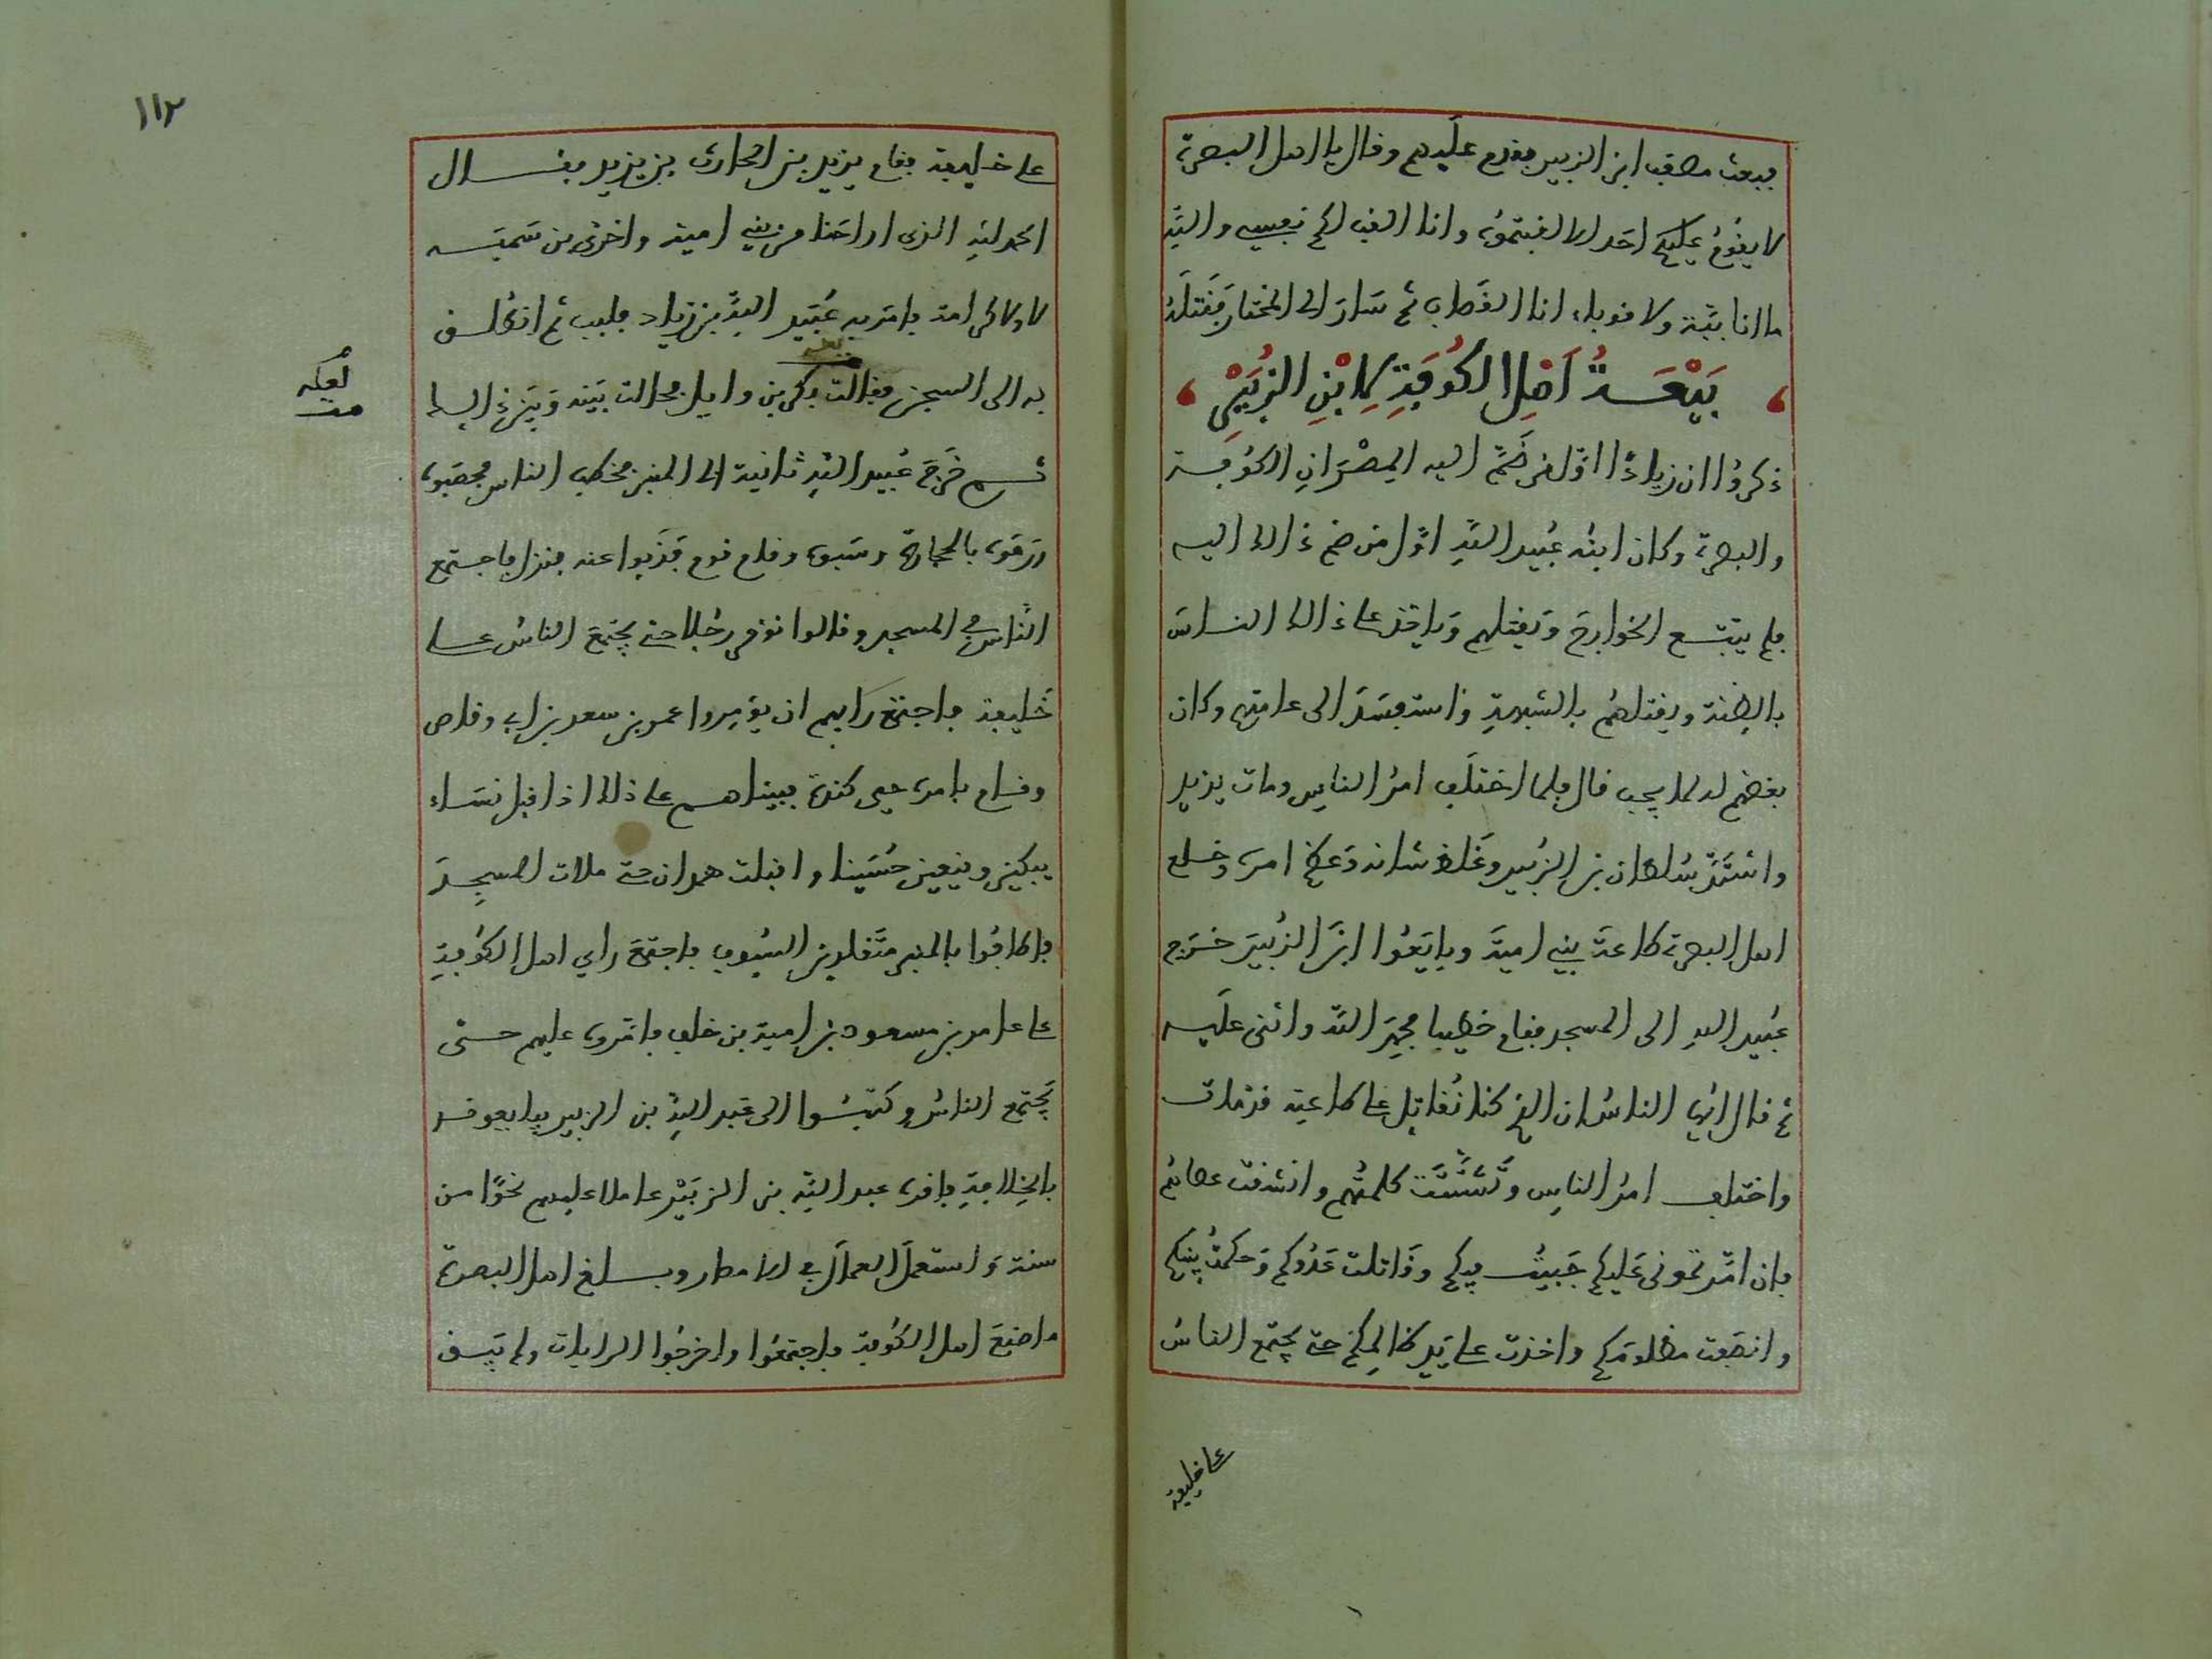 فبعث مصعب ابن الزبير فقدم عليهم وقال يا اهل البصرة
لا يقدم عليكم احد الا لقبتموه وانا القب لكم نفسي والله
ما انا ولا انا القصاب ثم سار الى المختار فقتله
بَيْعَةُ اَهْلِ الكُوفَةِ لِابْنِ الزُّبَيْرِ
ذكروا ان زيادًا اوّل من ضمّ اليه المصران الكوفة
والبصرة وكان ابنه عبيد اللهِ اوّل من ضم ذالك اليه
فلم يتبع الخوارج ويقتلهم وياخذ على ذالك الناسَ
بالظنة ويقتلهم بالشبهةِ واستفسد الى عامتهم وكان
بعضهم له لما يحب قال فلما اختلف امرُ الناسِ ومات يزيد
واشتدّ سُلطان بن الزُبير وغلظ شانه وعظم امره وخلع
اهل البصرة طاعة بني امية وبايعُوا ابنَ الزُبيرَ خرج
عُبيد اللهِ الى المسجد فقام خطيبا فحمِدَ اللهَ واثنى عليه
ثم قال ايها الناسُ ان الذي كنا نُقاتِل على طاعته قد مات
واختلف امرُ الناسِ وتَشَتَّت كلمتُهم وانشقت عصاهُم
فان امّرتمونى عَليكم جَبيتُ فيكم وقَاتلت عَدُوكم وَحكمتُ بينكم
وانصفت مظلومَكم واخذت على يَد ظالِمكم حتى يجتمع الناسُ
على خليفة
١١٢
على خليفة فقام يزيد بن الحارث بن يزيد فقال
الحمد للهِ الذى اراحَنا من بني امية واخزى بن سَميَه
لا ولا كرامة فامَر به عُبَيد اللهِ بن زياد فلبب ثم انطلق
به الى السجن فقالت بكر بن وايل فحالت بَينه وَبَين ذالك
لعله
ثم خَرجَ عُبيد اللهِ ثانية الى المنبر فخطب الناس فحصَبوه
ورمَوه بالحجارة وسَبوه وقام قوم فدنوا عنه فنزل فاجتمع
النّاس في المسجد وقالوا نؤمر رجُلا حتى يجتمعَ الناسُ على
خَليفة فاجتمَع رايهم ان يؤمِروا عمر بن سعد بن ابي وقاص
وقام بامره حيى كندة فبيناهم على ذالك اذ اقبل نسَاء
يبكين وينعين حُسَينا واقبلت همدان حتى ملات المسجدَ
فاطافُوا بالمنبر متَقلدين السُيوف فاجتمعَ راي اهل الكوُفةِ
على عامر بن مسعود بن امية بن خلف فامّروه عليهم حتّى
يَجتمع الناسُ وكتبُوا الى عَبد اللهِ بن الزبير يبايعونه
بالخِلافةِ فاقره عبد الله بن الزبَيْر عاملا عليهم نحوًا من
سنة وَاستعملَ العمالَ في الامصار وبلغ اهل البصرة
ما صنعَ اهل الكُوفة فاجتمَعُوا واخرجُوا الرايات ولم يَبق